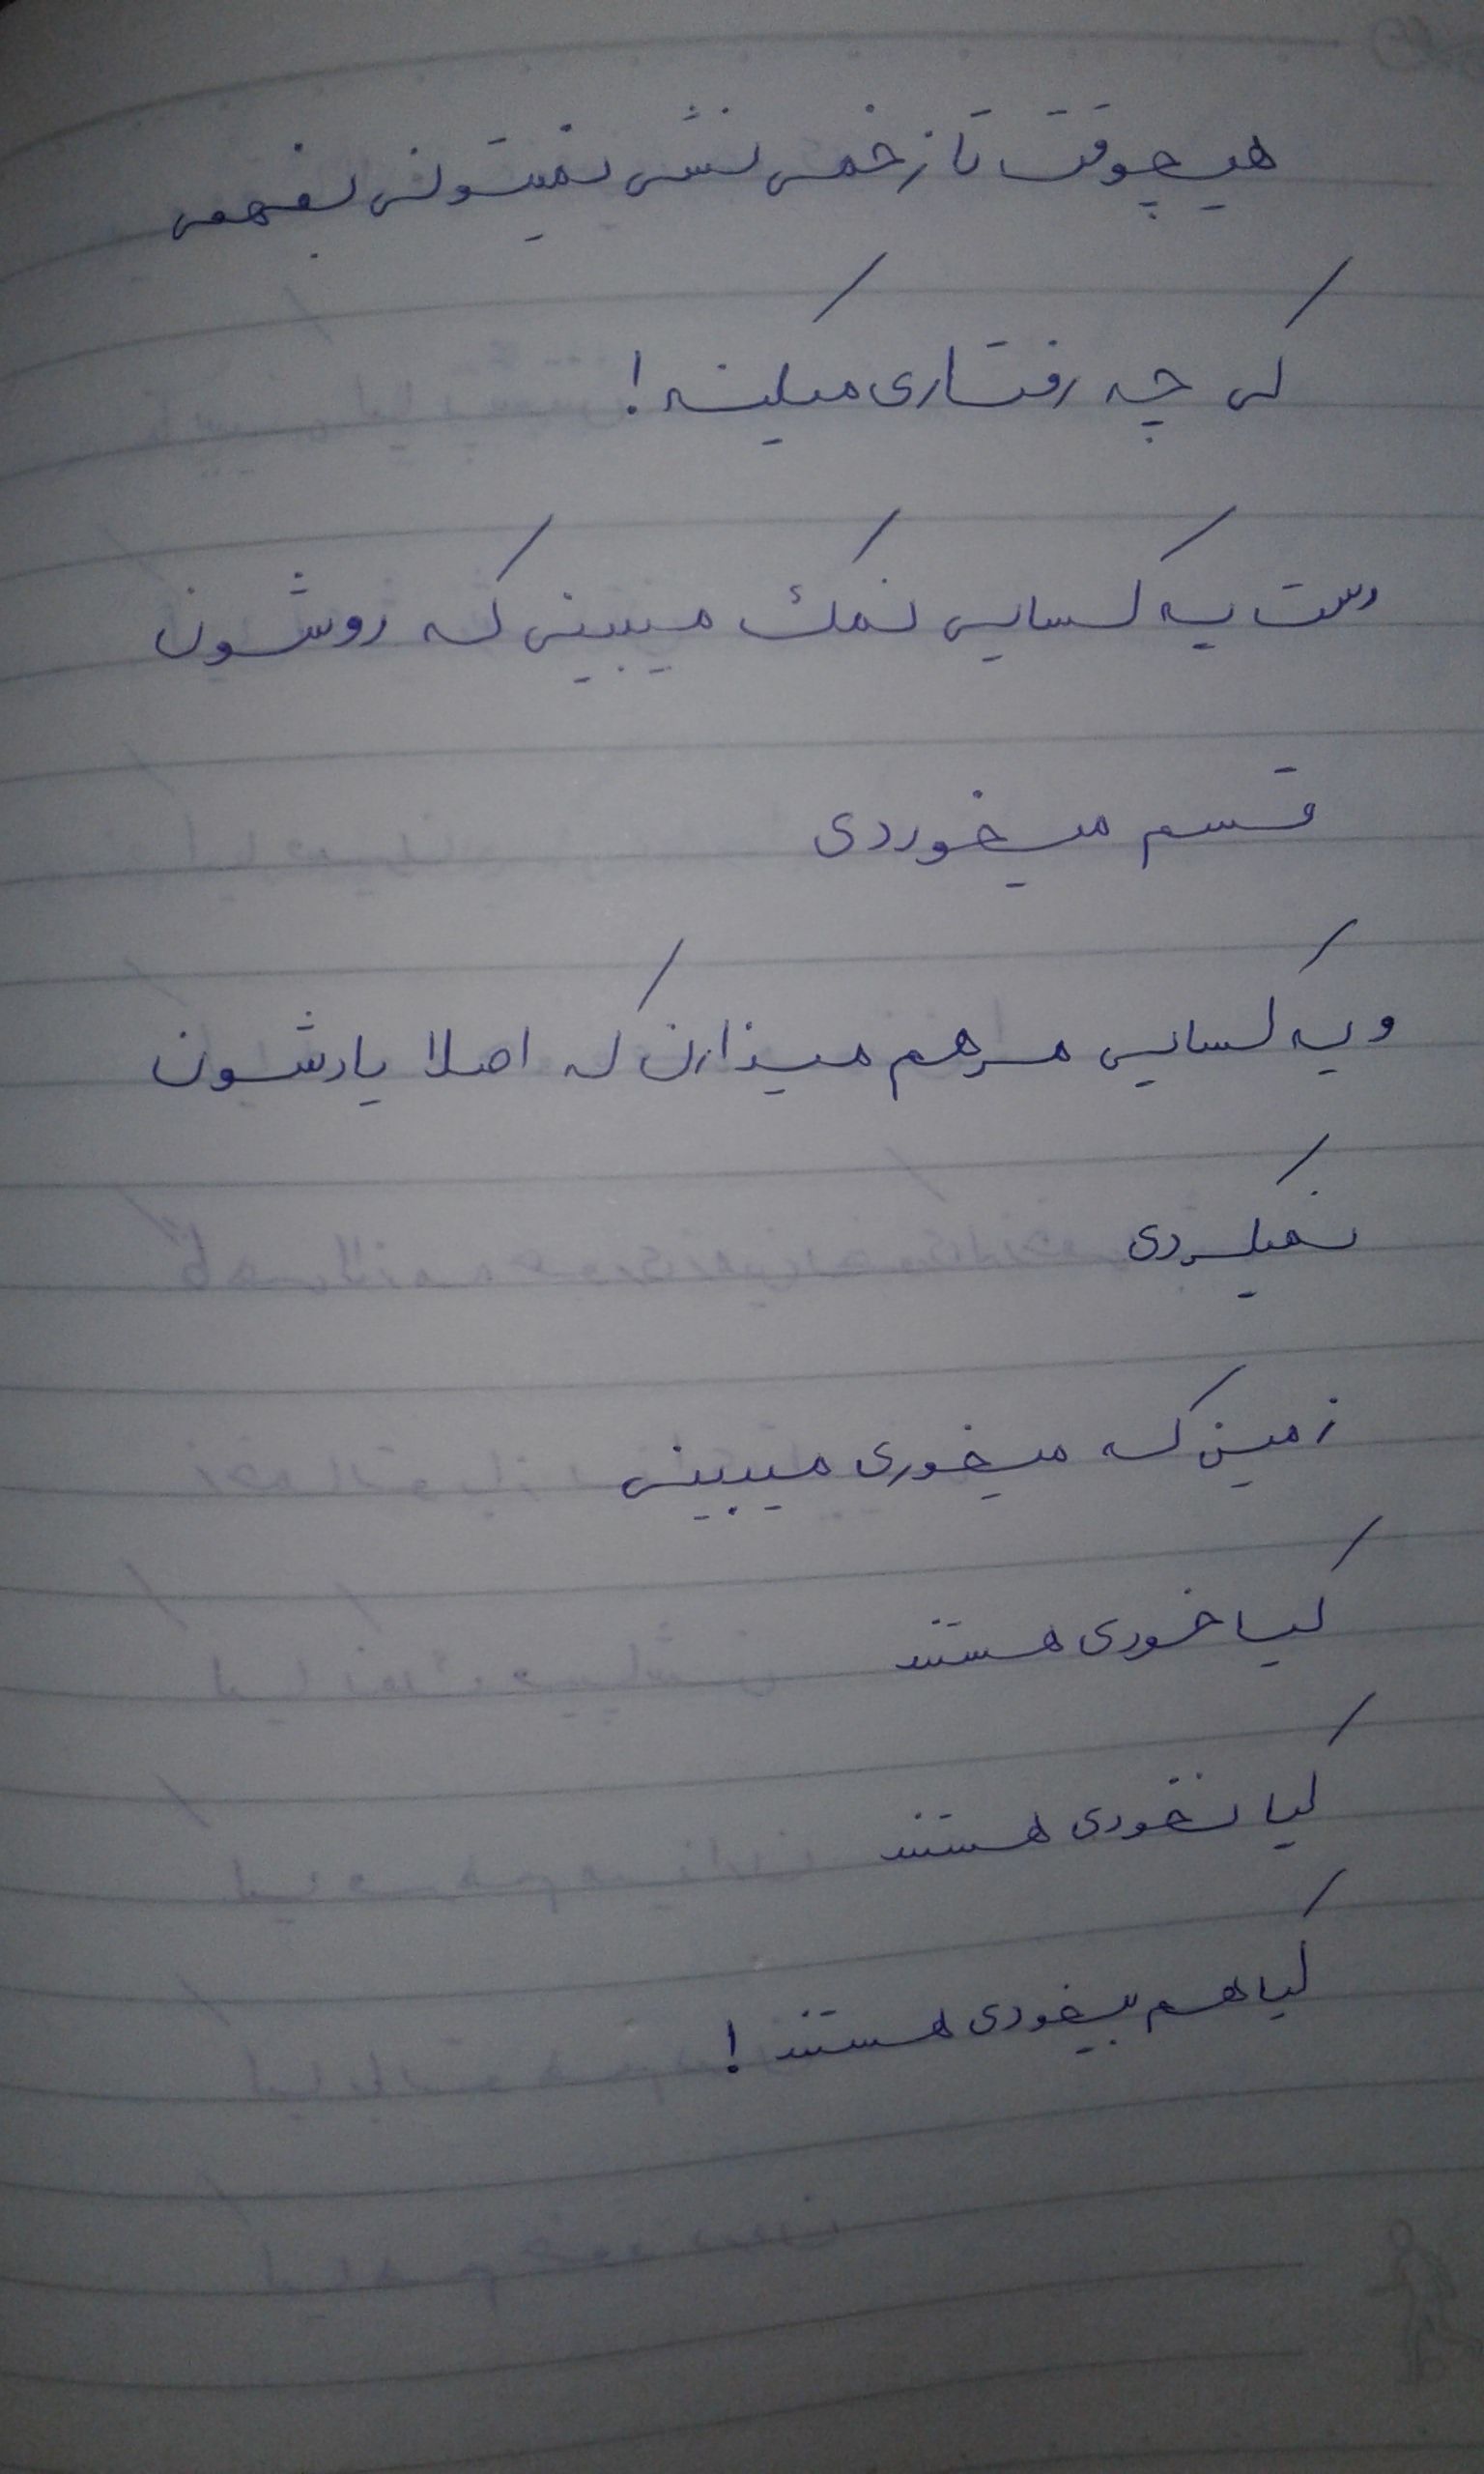 هیچوقت تا زخمی نشی نمیتونی بفهمی
کی چه رفتاری میکنه!
دست یه کسایی نمک میبینی که روشون
قسم میخوردی
و یه کسایی مرهم میذارن که اصلا یادشون
نمیکردی
زمین که میخوری میبینی
کیا خودی هستند
کیا نخودی هستند
کیا هم بیخودی هستند!